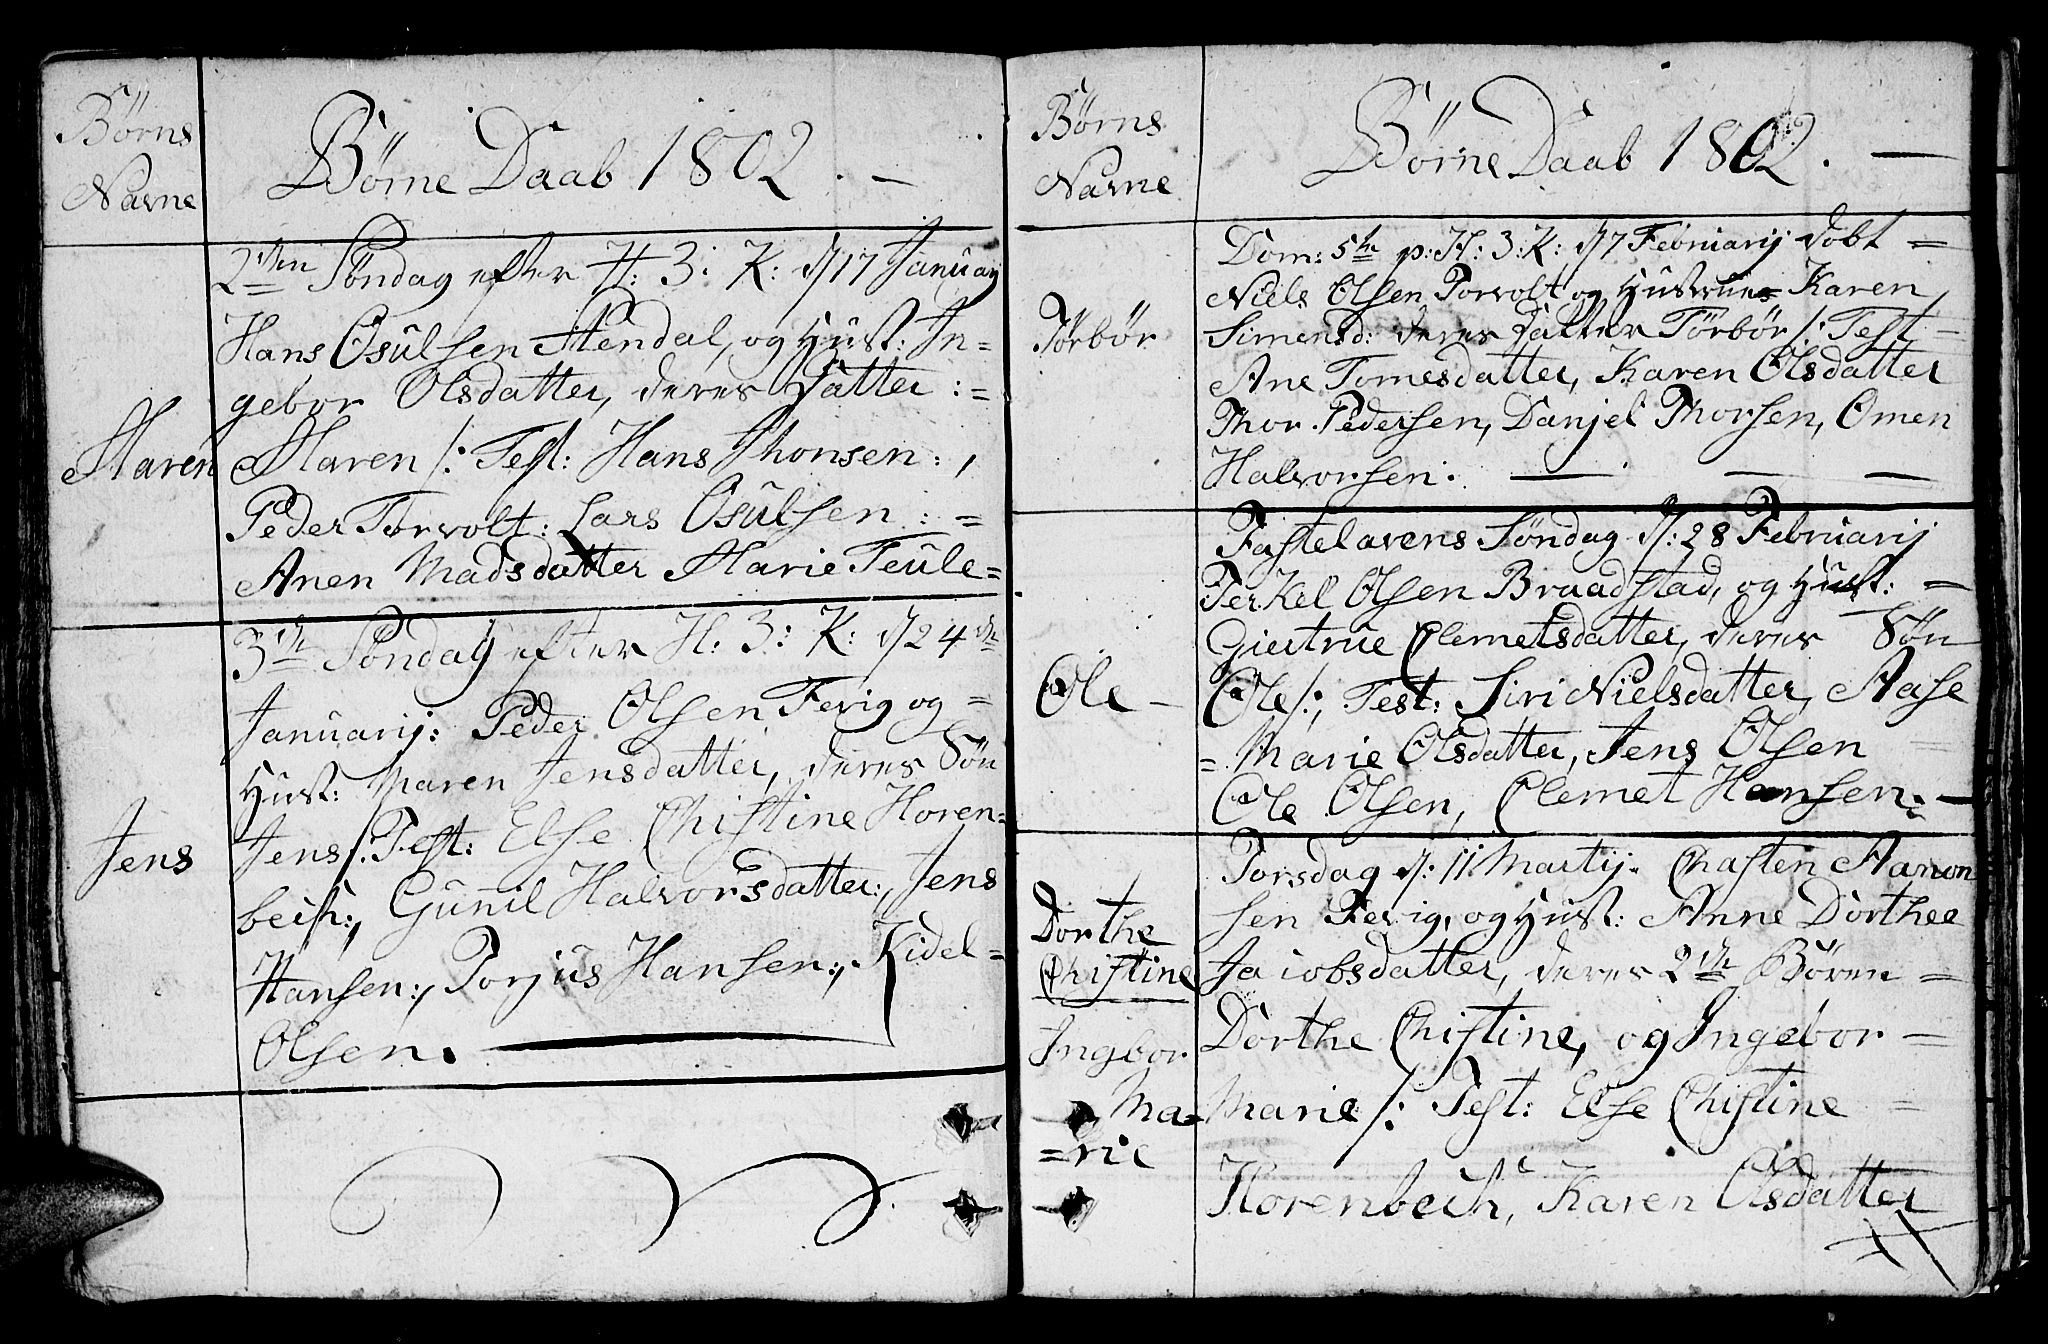 Børns
Navne
Børne Daab 1802. —
2den Søndag efter H: 3: K: d/17 Januarij
Hans Osulsen Stendal, og Hust: In=
gebor Olsdatter, deres Datter :=
Maren
Maren /: Test: Hans Thonsen:,
Peder Torvolt: Lars Osulsen :=
Anen Madsdatter Marie Teule=
3de Søndag efter H: 3: K: d/24de
Januarij: Peder Olsen Fevig og =
Hust: Maren Jensdatter, deres Søn
Jens
Jens /: Test: Else Christine Horen=
bech:, Gunil Halvorsdatter:, Jens
Hansen:, Torjus Hansen:, Kidel=
Olsen.
Børns
Navne
Børne Daab 1802. —
Dom: 5te p: H: 3: K: d/7 Februarij døbt =
Niels Olsen Torvolt og Hustrues Karen
Törbör
Simensd: deres Datter Törbör /: Test=
Ane Tomesdatter, Karen Olsdatter
Thor Pedersen, Danjel Thorsen, Omen
Halvorsen: — — —
Fastelavens Søndag d/: 28 Februarij
Terkel Olsen Braadstad, og Hust: =
Giertrue Clemetsdatter, deres Søn
Ole —
Ole /:, Test: Siri Nielsdatter, Aase
= Marie Olsdatter, Jens Olsen
Ole Olsen, Clemet Hansen: —
Torsdag d/: 11 Martij: Chasten Aanon
sen Fevig, og Hust: Anne Dorthee
Dorthe
Christine
Jacobsdatter, deres 2de Børen =
Ingbor
Ma=
=rie
Dorthe Christine, og Ingebor —
Marie /: Test: Else Christine =
Horenbech, Karen Olsdatter